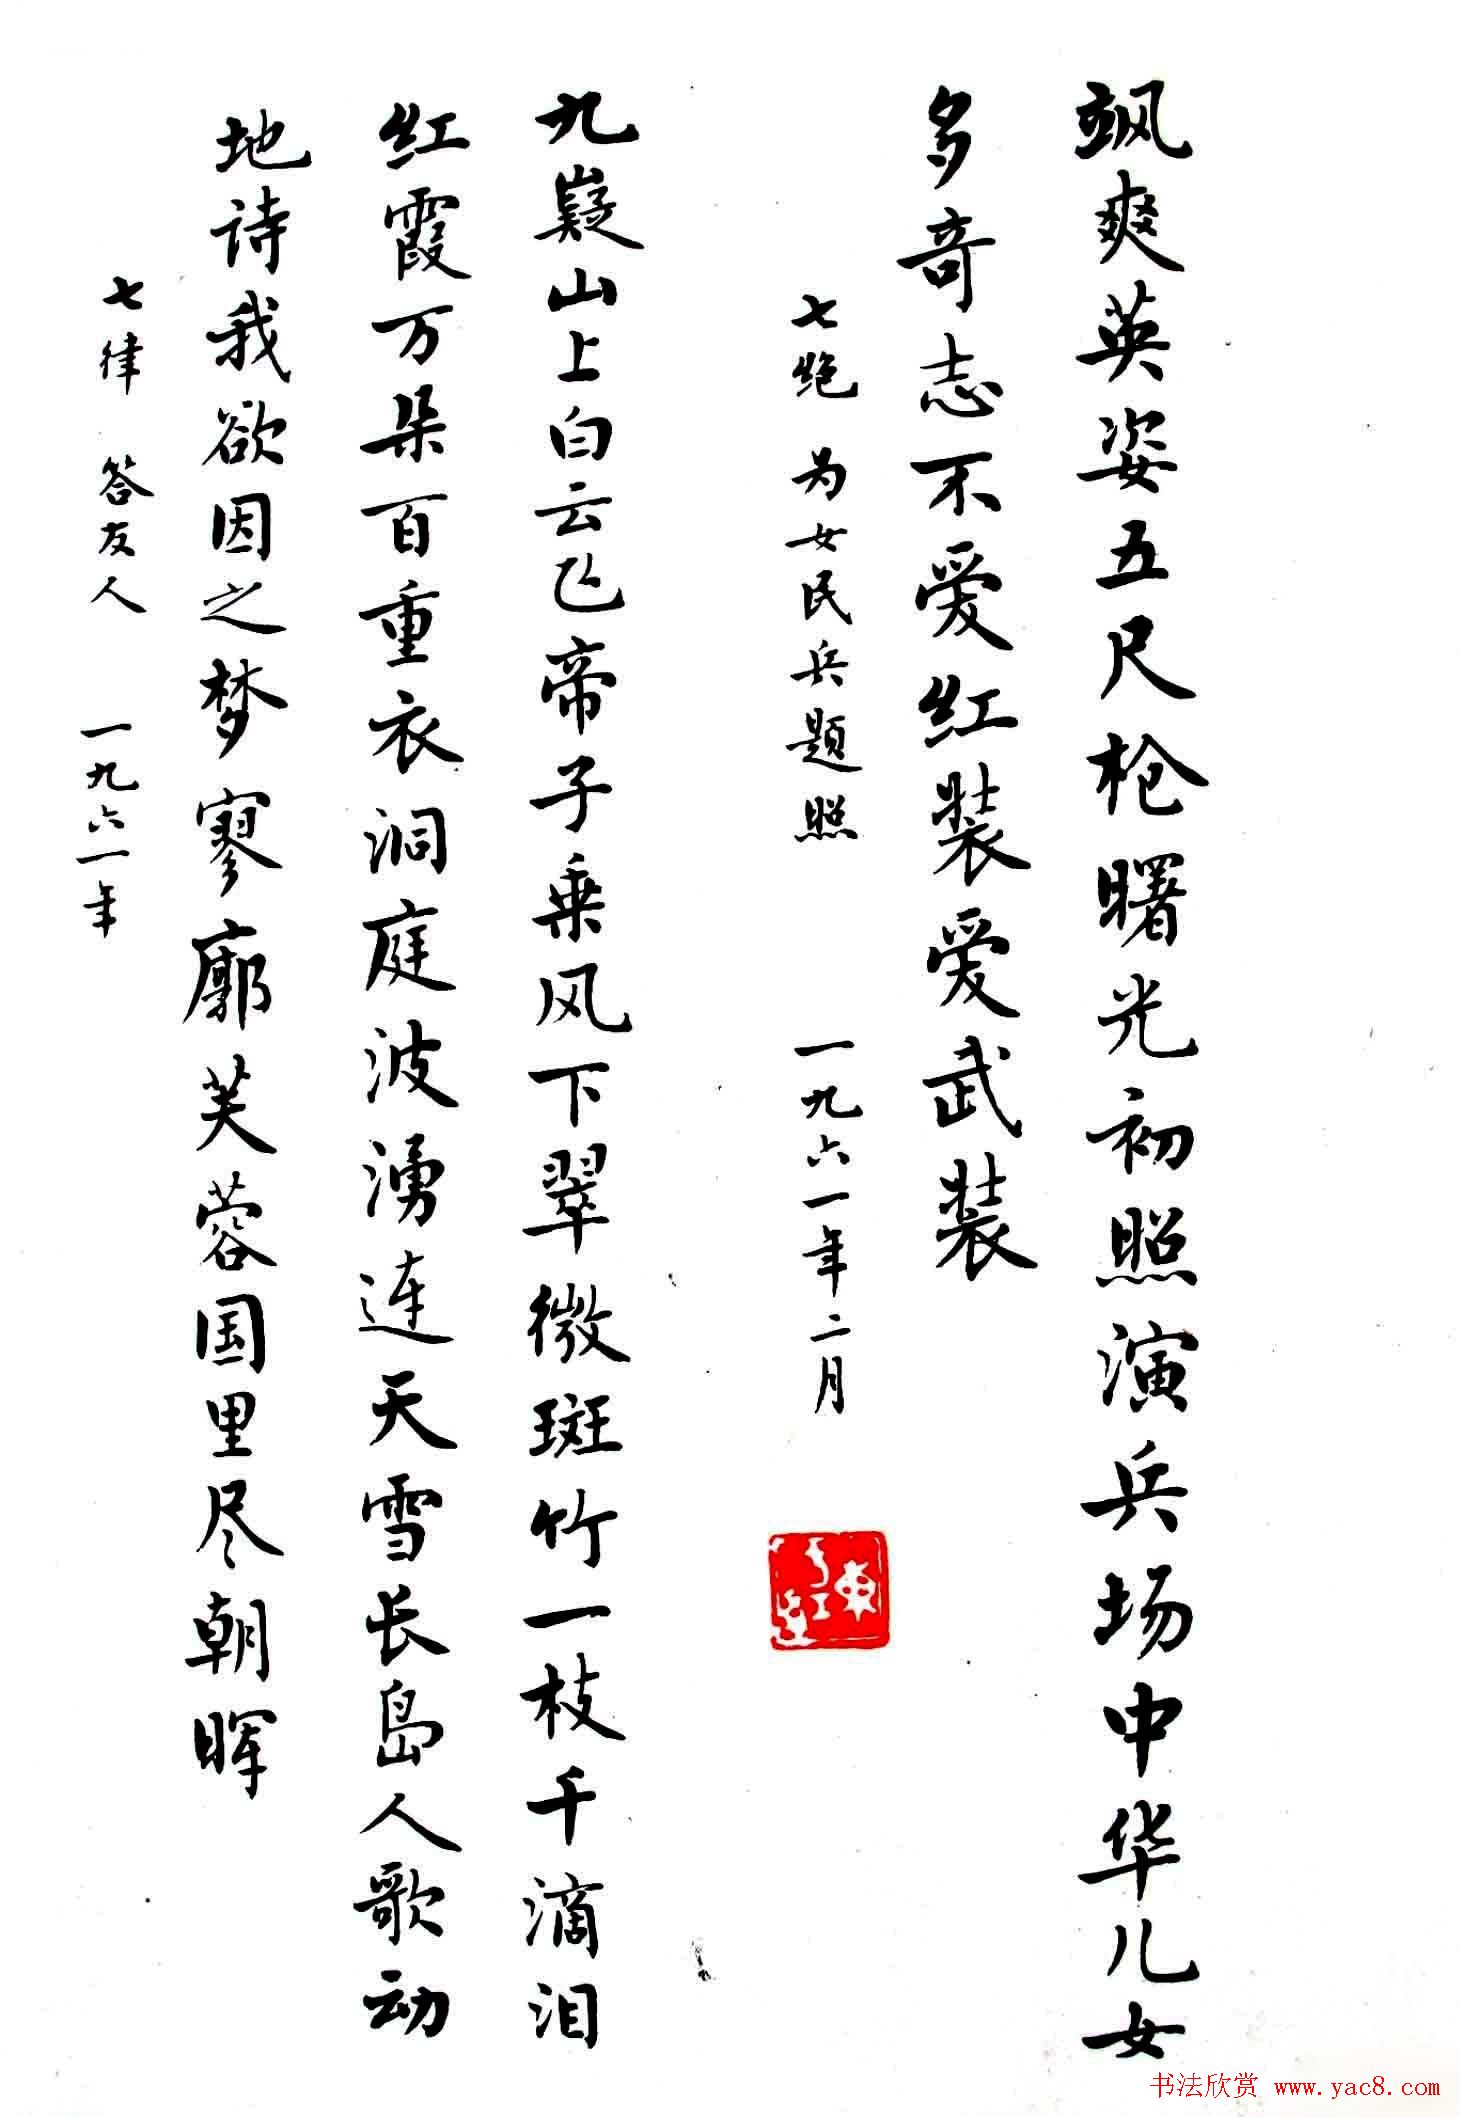 飒爽英姿五尺枪曙光初照演兵场中华儿女
多奇志不爱红装爱武装
七绝 为女民兵题照 一九六一年二月
九嶷山上白云飞帝子乘风下翠微斑竹一枝千滴泪
红霞万朵百重衣洞庭波涌连天雪长岛人歌动
地诗我欲因之梦寥廓芙蓉国里尽朝晖
七律 答友人 一九六一年
书法欣赏 www.yac8.com